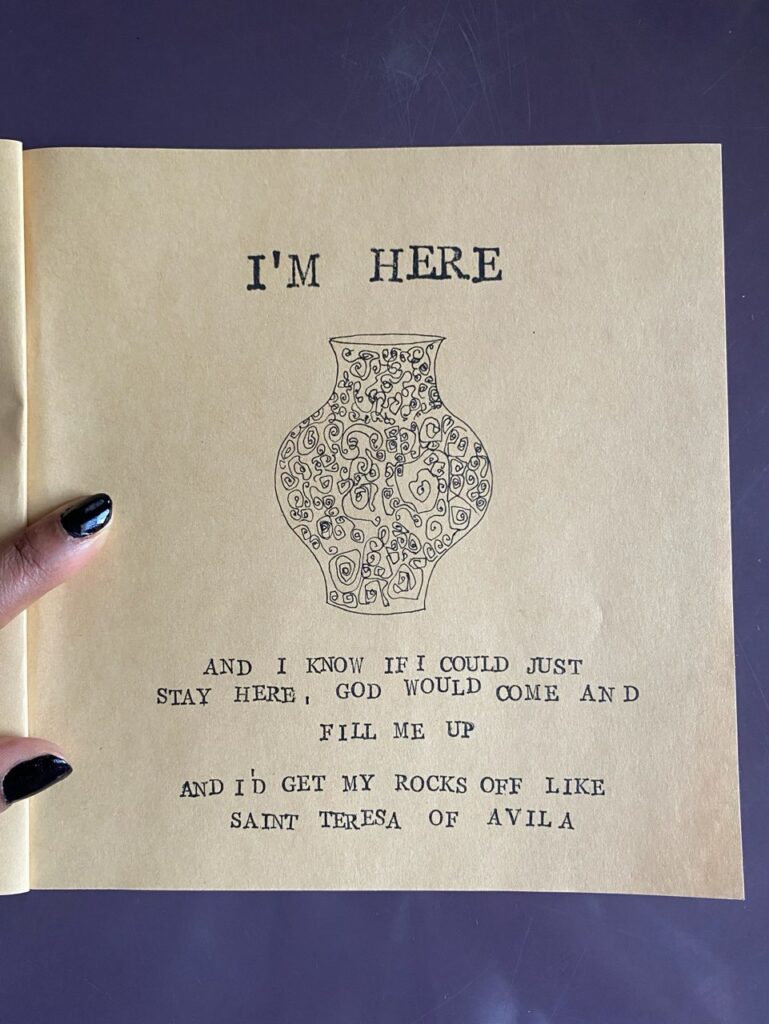 I'M HERE
AND I KNOW IF I COULD JUST
STAY HERE, GOD WOULD COME AND
FILL ME UP
AND I'D GET MY ROCKS OFF LIKE
SAINT TERESA OF AVILA